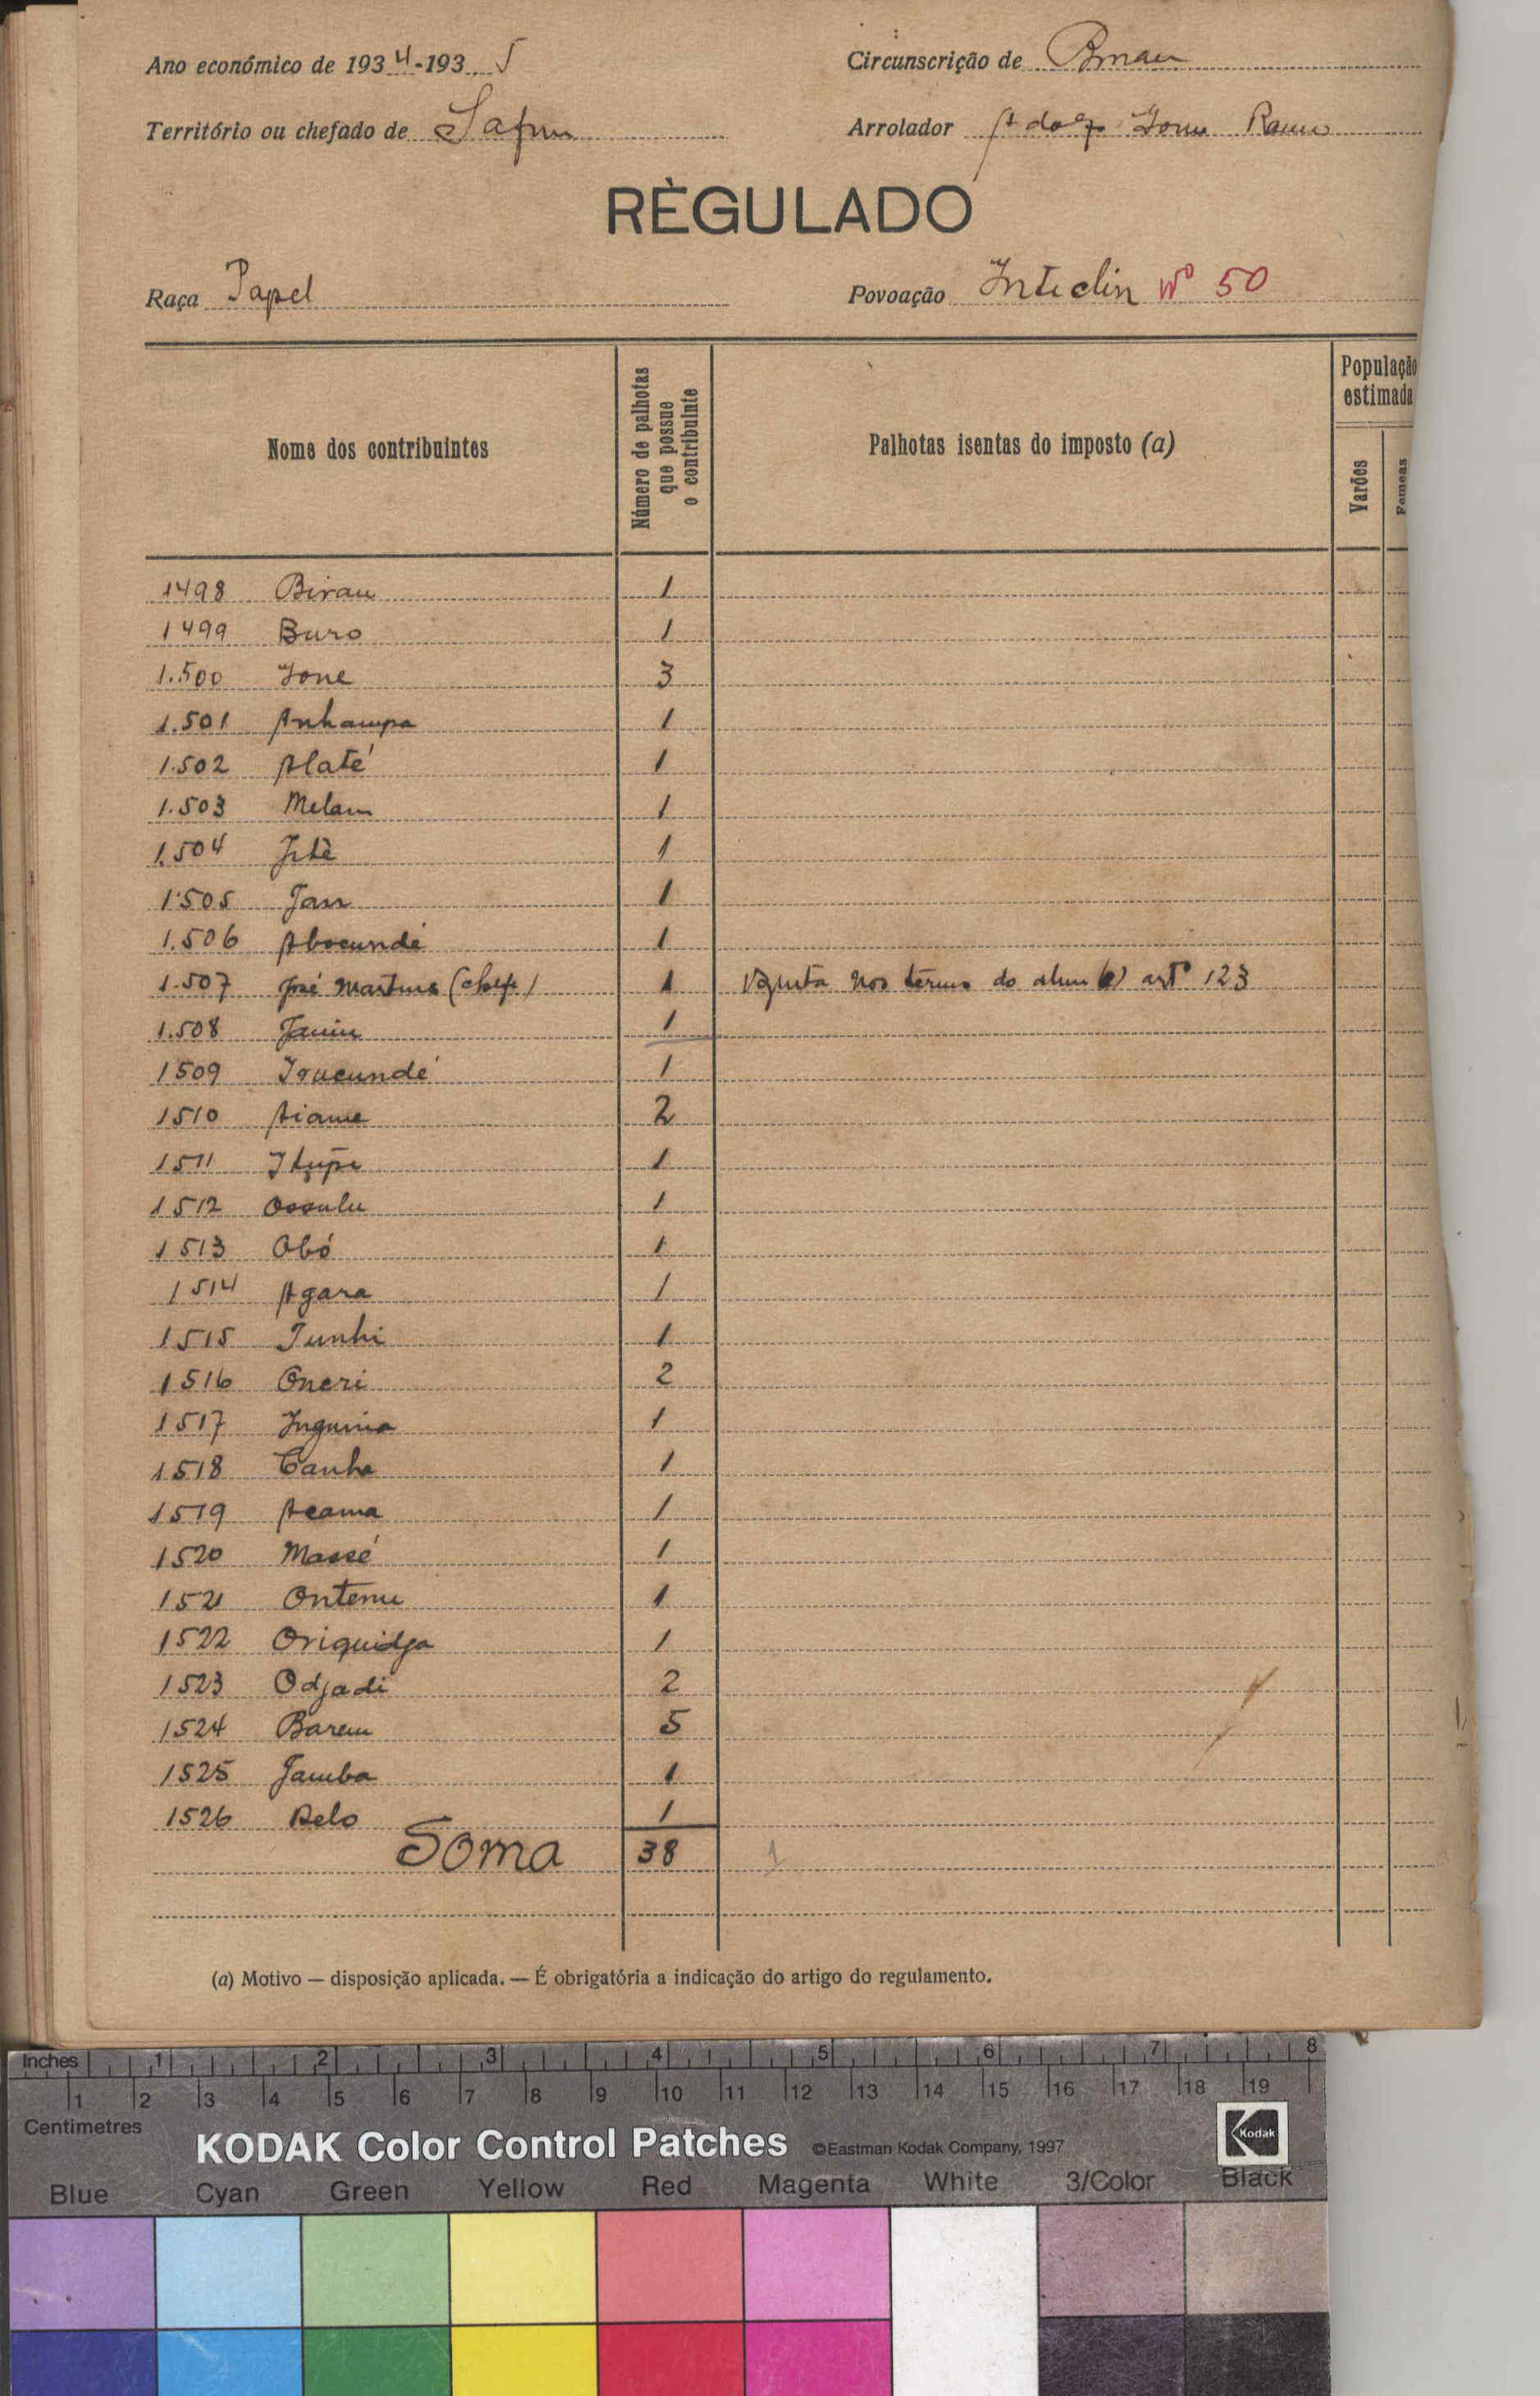 Ano económico de 1934-1935
Circunscrição de
Território ou chefado de Safim
Arrolador
RÈGULADO
Raça Papel
Povoação Inteclin Nº 50
Nome dos contribuintes
Número de palhotas que possue o contribuinte
Palhotas isentas do imposto (a)
População estimada
Varões
Femeas
1498 Birau 1
1499 Buro 1
1.500 Jone 3
1.501 Anhampa 1
1.502 Alaté 1
1.503 Melam 1
1.504 1
1.505 1
1.506 Abocundé 1
1.507 José Martins (chefe) 1 nos termos do artº 123
1.508 1
1509 1
1510 2
1511 1
1512 Ossulu 1
1513 Obó 1
1514 Agara 1
1515 Tunhi 1
1516 Oneri 2
1517 Inguina 1
1518 Canha 1
1519 Acama 1
1520 Massé 1
1521 Onteme 1
1522 Oriquidja 1
1523 Odjadi 2
1524 Barem 5
1525 Jamba 1
1526 Belo 1
Soma 38 1
(a) Motivo — disposição aplicada. — É obrigatória a indicação do artigo do regulamento.
Inches 1 2 3 4 5 6 7 8
1 2 3 4 5 6 7 8 9 10 11 12 13 14 15 16 17 18 19
Centimetres
KODAK Color Control Patches ©Eastman Kodak Company, 1997 Kodak
Blue Cyan Green Yellow Red Magenta White 3/Color Black